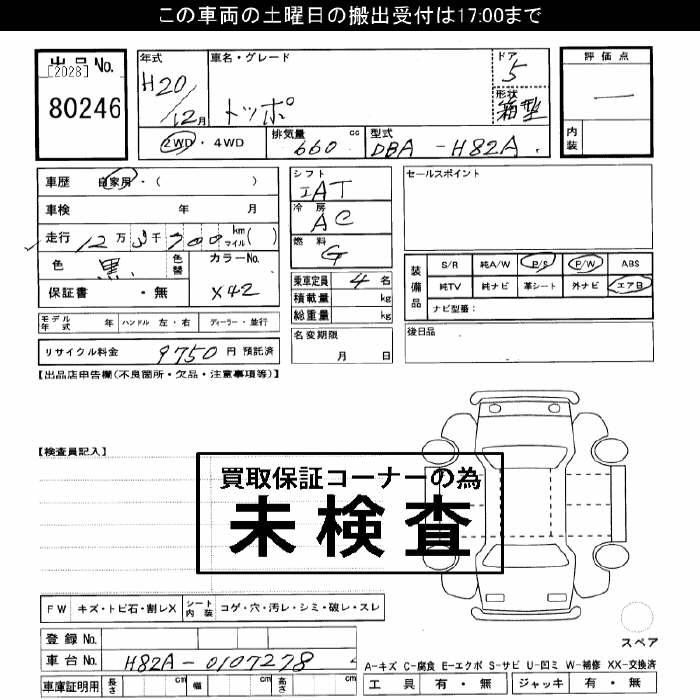 この車両の土曜日の搬出受付は17:00まで
出品No.
[2028]
80246
年式
H20/12月
車名・グレード
トッポ
ドア
5
形状
箱型
評価点
—
内装
2WD・4WD
排気量 660 cc
型式 DBA-H82A
車歴 自家用・( )
車検 年 月
走行 12万3千700km マイル( )
色 黒
色替
カラーNo.
X42
保証書 ・無
モデル年式 年 ハンドル 左・右 ディーラー・並行
リサイクル料金 9750円 預託済
シフト
IAT
冷房
AC
燃料
G
乗車定員 4名
積載量 kg
総重量 kg
名変期限
月 日
セールスポイント
装備品
S/R 純A/W P/S P/W ABS
純TV 純ナビ 革シート 外ナビ エアB
ナビ型番:
後日品
【出品店申告欄(不良箇所・欠品・注意事項等)】
【検査員記入】
買取保証コーナーの為
未検査
FW キズ・トビ石・割レX シート内装 コゲ・穴・汚レ・シミ・破レ・スレ
登録No.
車台No. H82A-0107278
車庫証明用 長さ cm 幅 cm 高さ cm
スペア
A-キズ C-腐食 E-エクボ S-サビ U-凹ミ W-補修 XX-交換済
工具 有・無 ジャッキ 有・無